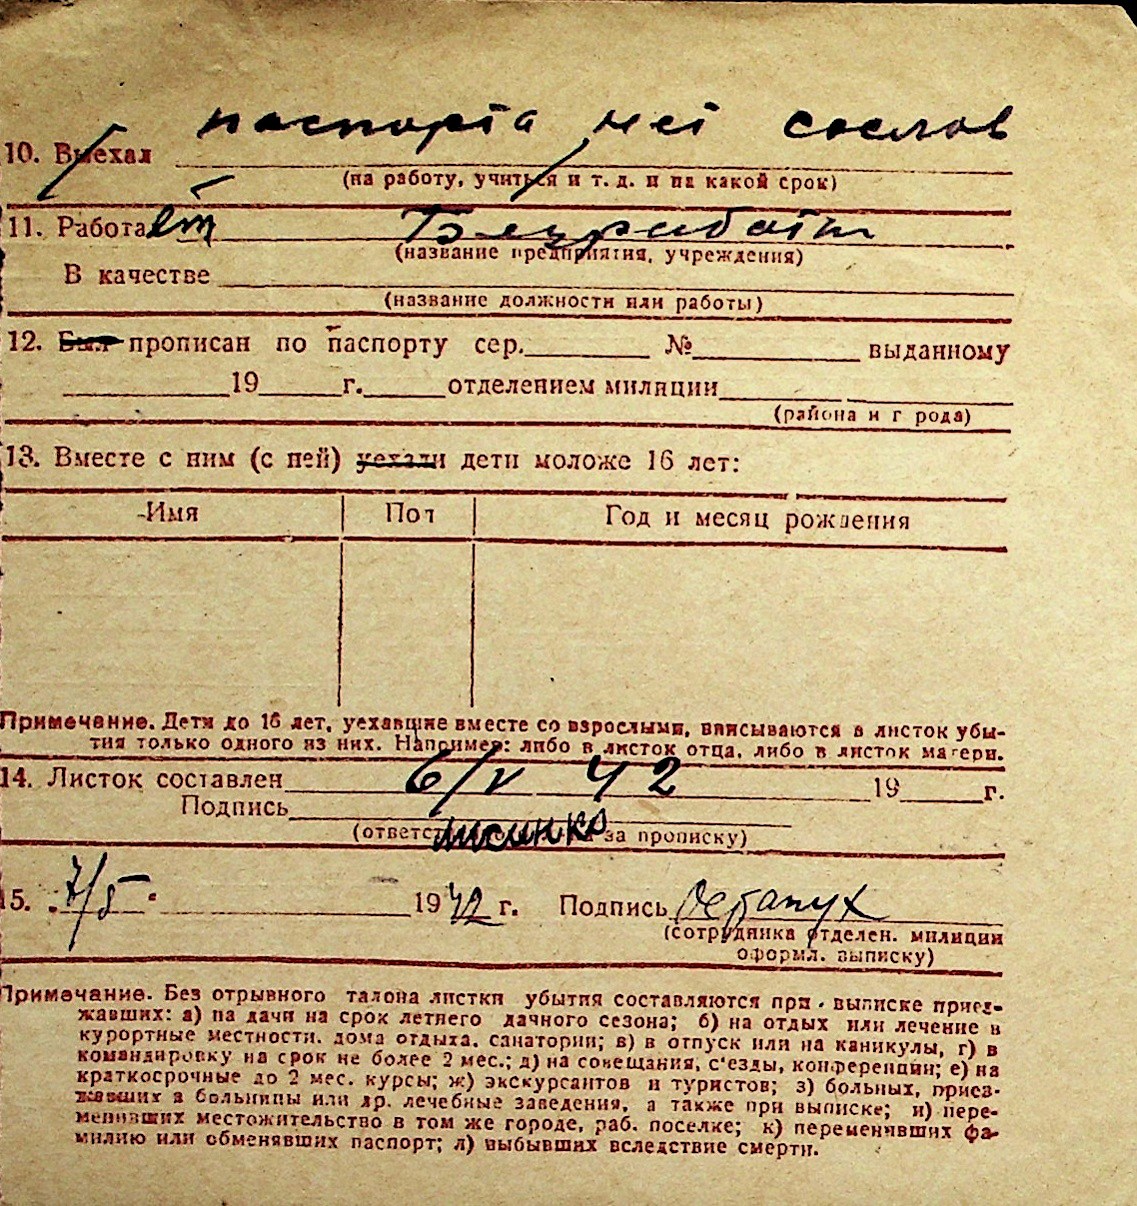 паспорта нет со слов
10. Выехал
(на работу, учиться и т. д. и на какой срок)
11. Работает
(название предприятия, учреждения)
В качестве
(название должности или работы)
12. Был прописан по паспорту сер. № выданному
19 г. отделением милиции
(района и города)
13. Вместе с ним (с ней) уехали дети моложе 16 лет:
Имя Пол Год и месяц рождения
Примечание. Дети до 16 лет, уехавшие вместе со взрослыми, вписываются в листок убы-
тия только одного из них. Например: либо в листок отца, либо в листок матери.
14. Листок составлен 6/V 42 19 г.
Подпись
(ответств за прописку)
15. 7/5 1942 г. Подпись
(сотрудника отделен. милиции
оформл. выписку)
Примечание. Без отрывного талона листки убытия составляются при выписке приез-
жавших: а) на дачи на срок летнего дачного сезона; б) на отдых или лечение в
курортные местности, дома отдыха, санатории; в) в отпуск или на каникулы, г) в
командировку на срок не более 2 мес.; д) на совещания, с'езды, конференции; е) на
краткосрочные до 2 мес. курсы; ж) экскурсантов и туристов; з) больных, приез-
жавших в больницы или др. лечебные заведения, а также при выписке; и) пере-
менивших местожительство в том же городе, раб. поселке; к) переменивших фа-
милию или обменявших паспорт; л) выбывших вследствие смерти.